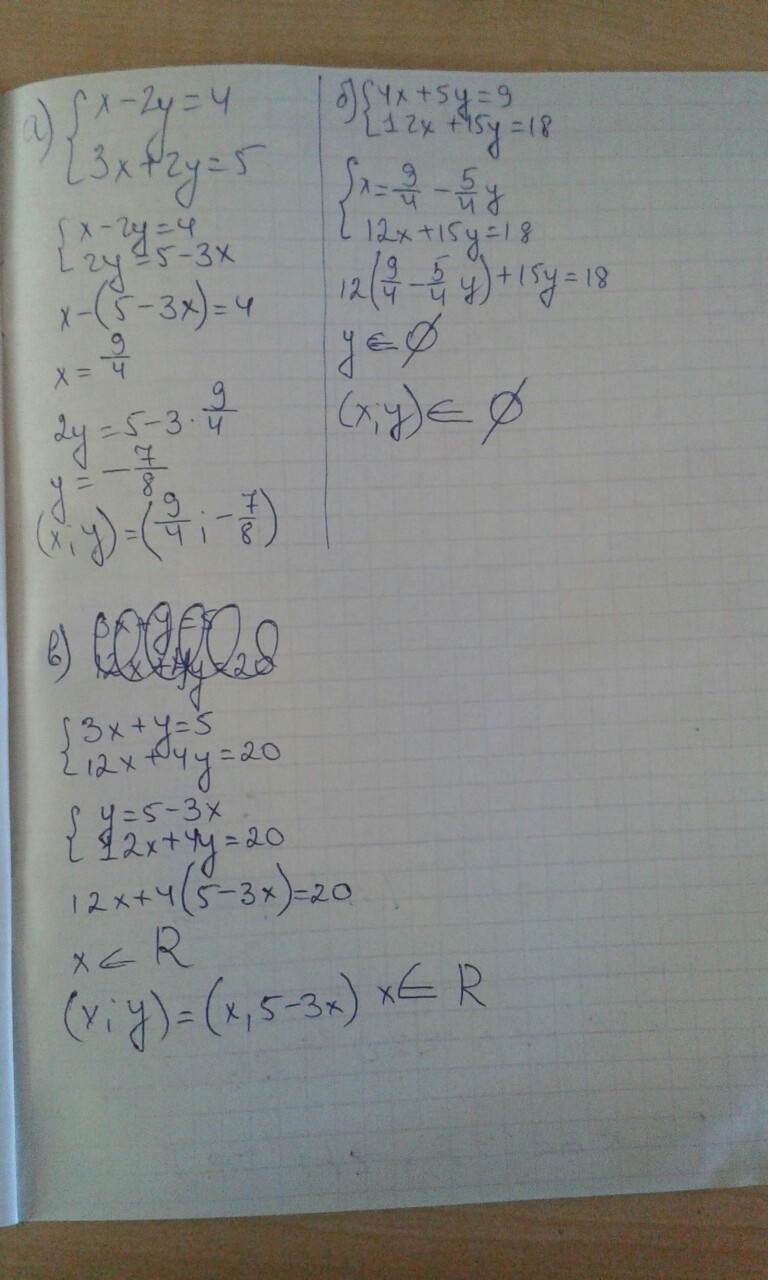 а) { x-2y=4
3x+2y=5
{ x-2y=4
2y=5-3x
x-(5-3x)=4
x= 9/4
2y=5-3·9/4
y=-7/8
(x;y)=(9/4;-7/8)
б) { 4x+5y=9
12x+15y=18
{ x=9/4-5/4y
12x+15y=18
12(9/4-5/4y)+15y=18
y∈∅
(x;y)∈∅
в) 3x+y=5
12x+4y=20
{ 3x+y=5
12x+4y=20
{ y=5-3x
12x+4y=20
12x+4(5-3x)=20
x∈R
(x;y)=(x,5-3x) x∈R